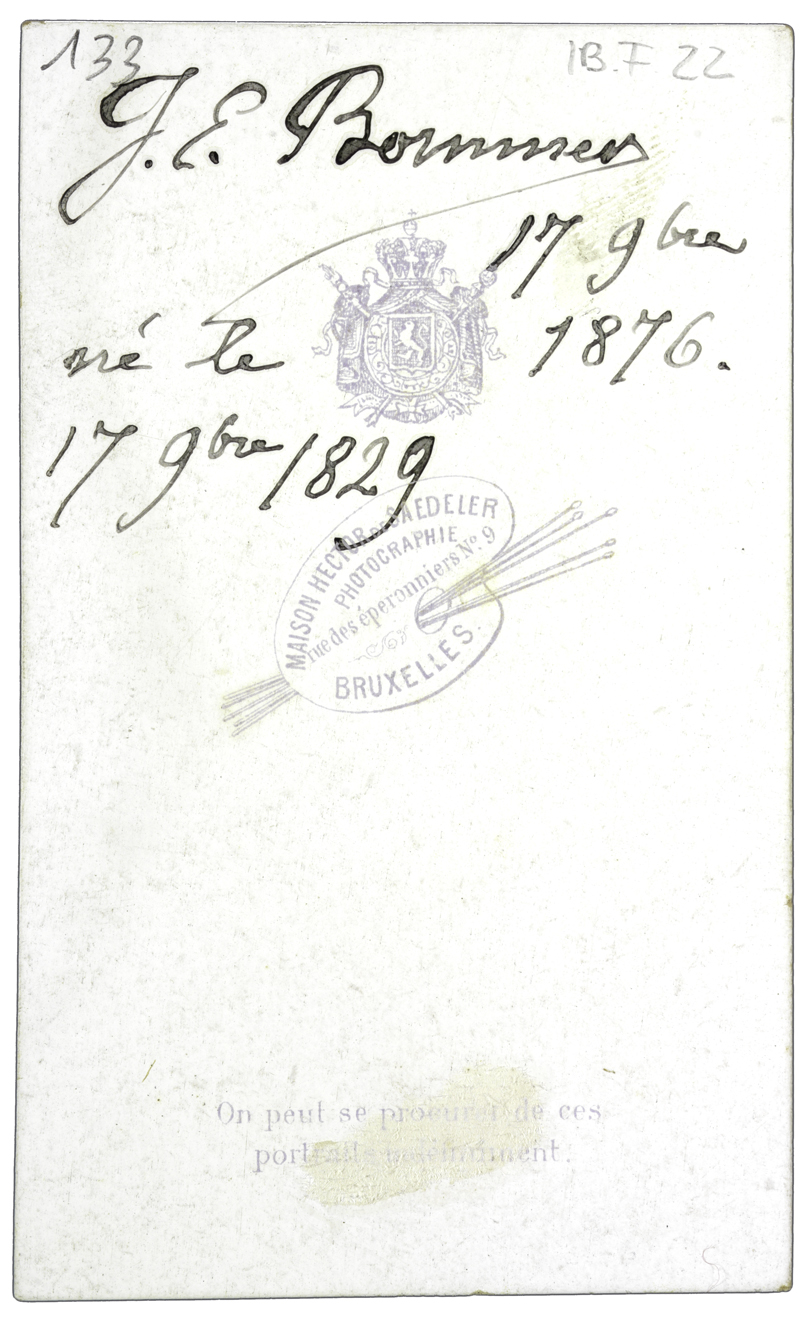 133
IB.F 22
J. E. Bommer
17 9bre
1876.
né le
17 9bre 1829
MAISON HECTOR DE SAEDELER
PHOTOGRAPHIE
rue des éperonniers No. 9
BRUXELLES.
On peut se procurer de ces
portraits indéfiniment.